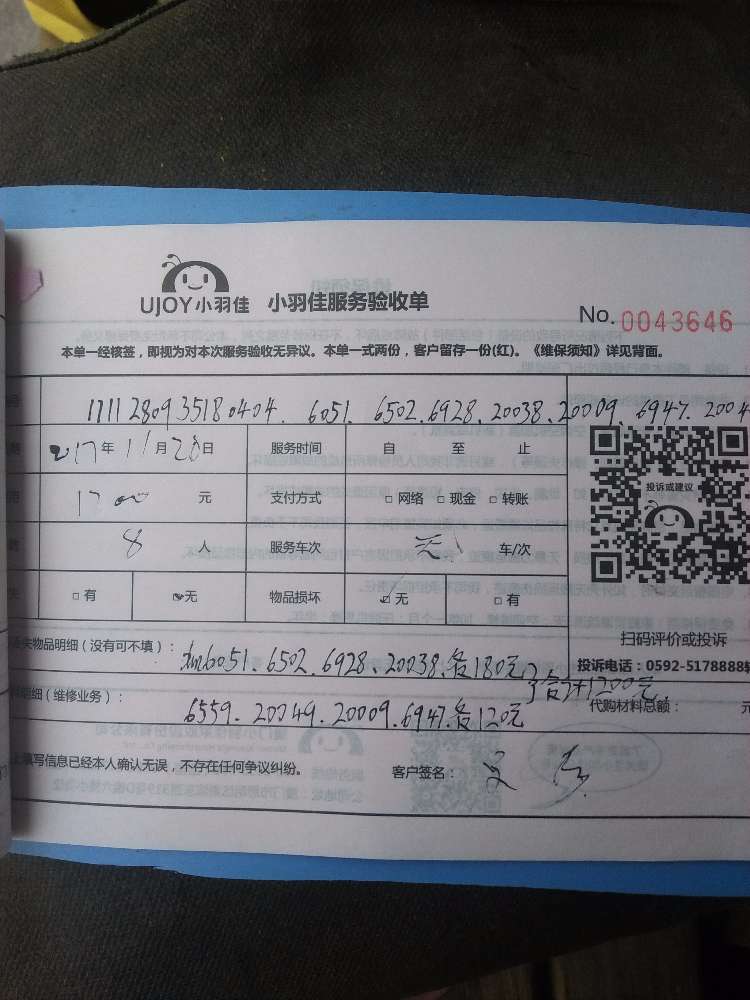 UJOY小羽佳 小羽佳服务验收单
No. 0043646
本单一经核签，即视为对本次服务验收无异议。本单一式两份，客户留存一份(红)。《维保须知》详见背面。
1711280935180404. 6051. 6502. 6928. 20038. 20009. 6947. 2004
2017年11月28日 服务时间 自 至 止
1200 元 支付方式 □网络 □现金 □转账
8 人 服务车次 无 车/次
投诉或建议
□有 ☑无 物品损坏 ☑无 □有
扫码评价或投诉
失物品明细（没有可不填）： 6051. 6502. 6928. 20038. 各180元
投诉电话：0592-5178888转
明细（维修业务）： 6559. 20049. 20009. 6947. 各120元
合计1200元
代购材料总额： 元
上填写信息已经本人确认无误，不存在任何争议纠纷。 客户签名：